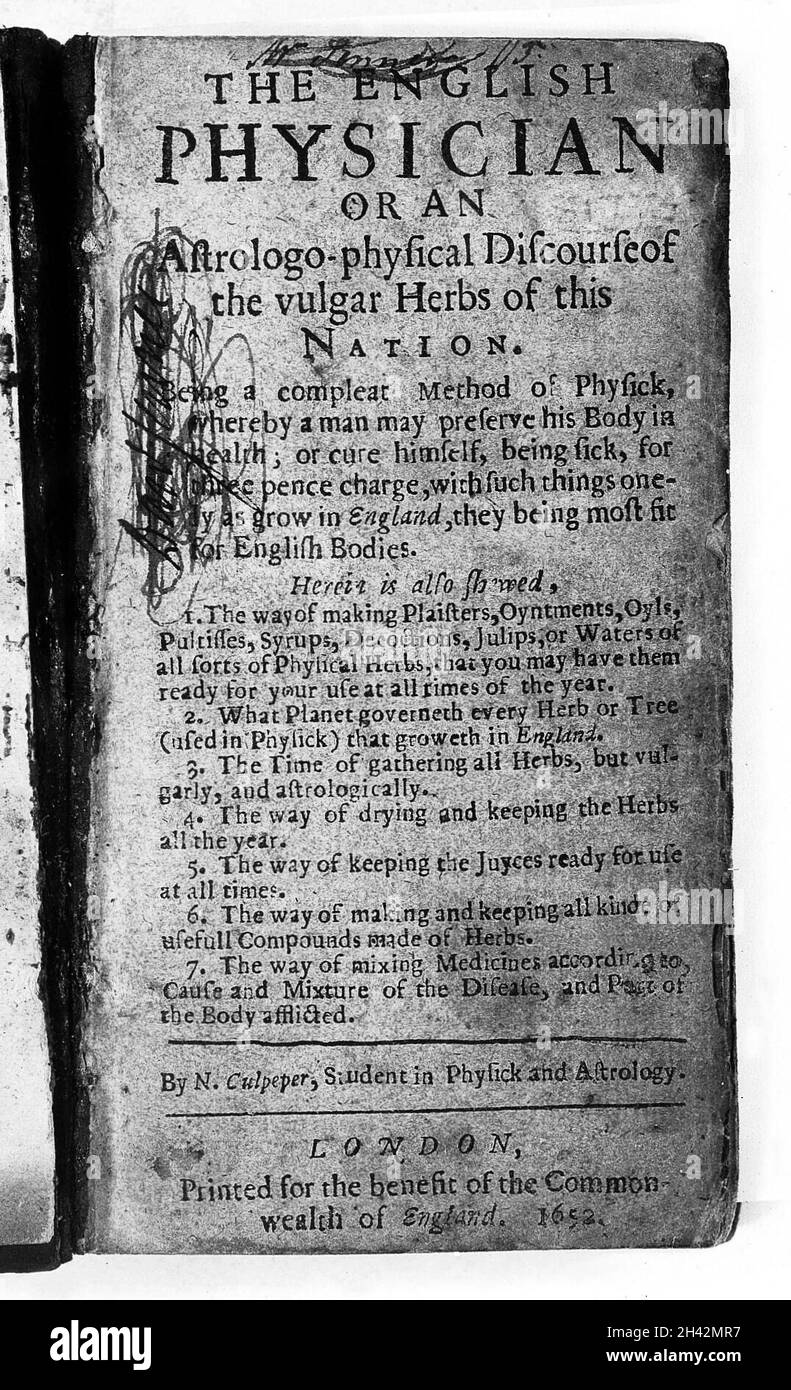 THE ENGLISH
PHYSICIAN
OR AN
Aſtrologo-phyſical Diſcourſeof
the vulgar Herbs of this
NATION.
Being a compleat Method of Phyſick,
whereby a man may preſerve his Body in
Health; or cure himſelf, being ſick, for
three pence charge, with ſuch things one-
ly as grow in England, they being moſt fit
for Engliſh Bodies.
Herein is alſo ſhewed,
1. The way of making Plaiſters, Oyntments, Oyls,
Pultiſſes, Syrups, Decoctions, Julips, or Waters of
all ſorts of Phyſical Herbs, that you may have them
ready for your uſe at all times of the year.
2. What Planet governeth every Herb or Tree
(uſed in Phyſick) that groweth in England.
3. The Time of gathering all Herbs, but vul-
garly, and aſtrologically.
4. The way of drying and keeping the Herbs
all the year.
5. The way of keeping the Juyces ready for uſe
at all times.
6. The way of making and keeping all kinds of
uſefull Compounds made of Herbs.
7. The way of mixing Medicines according to,
Cauſe and Mixture of the Diſeaſe, and Part of
the Body afflicted.
By N. Culpeper, Student in Phyſick and Aſtrology.
LONDON,
Printed for the benefit of the Common-
wealth of England. 1652.
alamy
Image ID: 2H42MR7
www.alamy.com